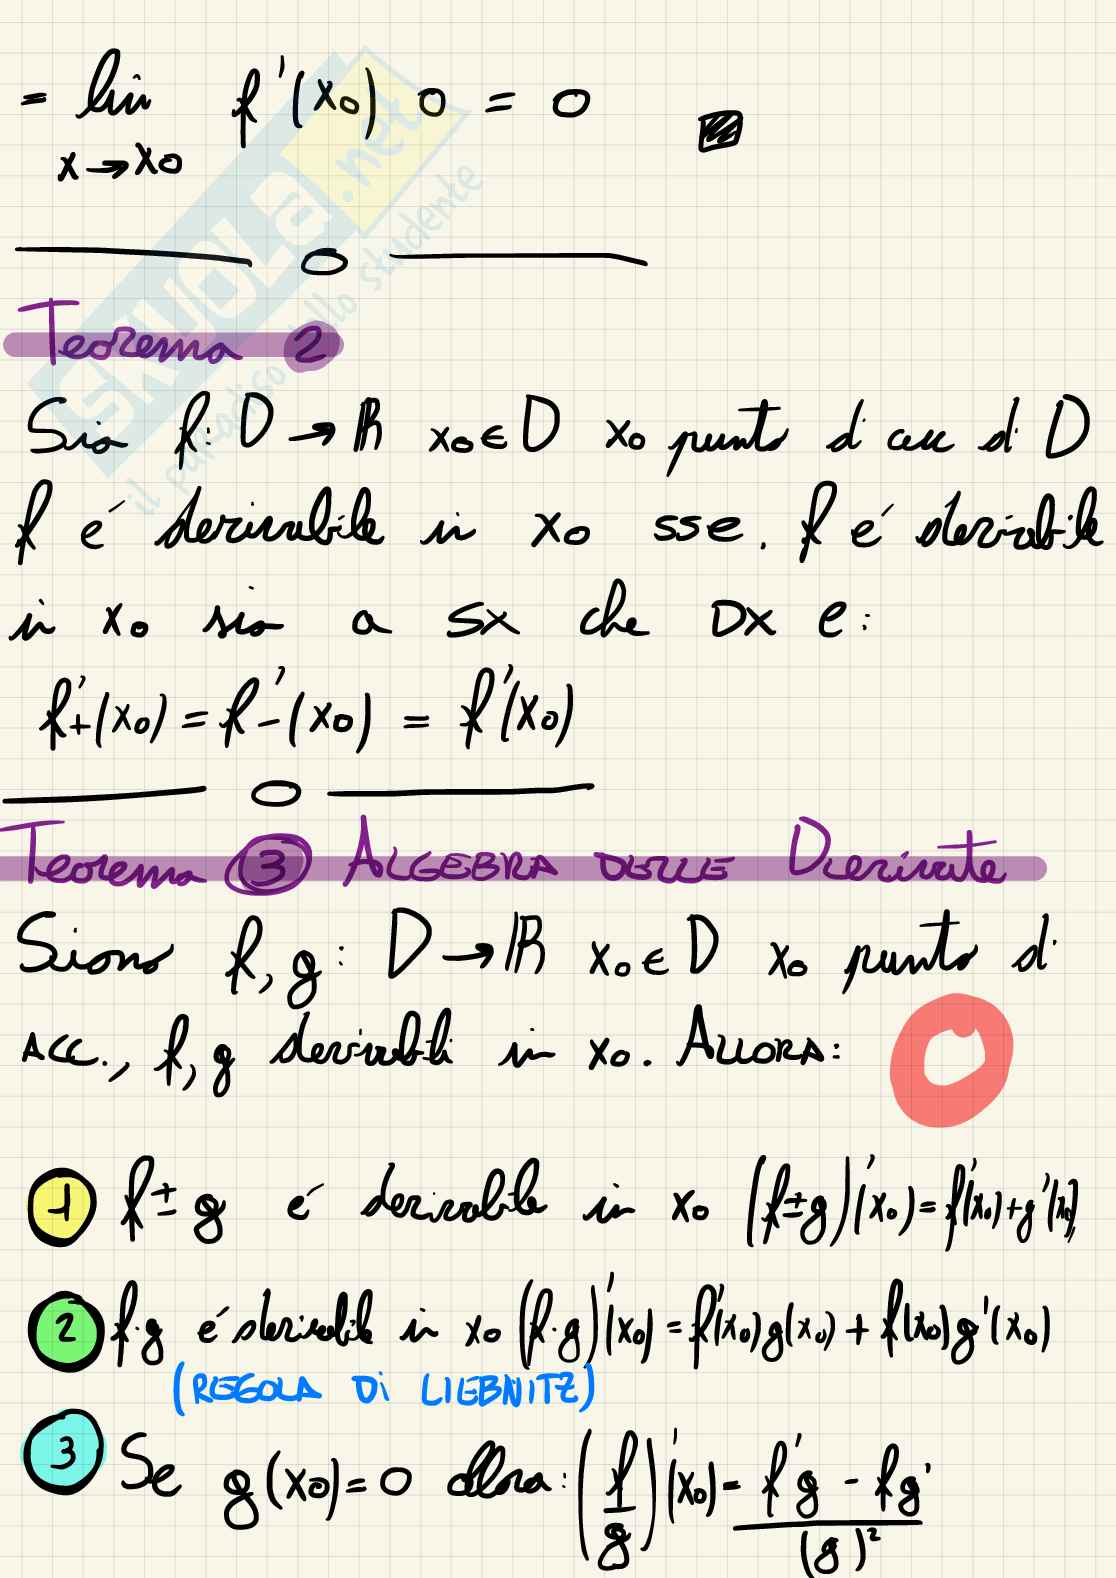 = lim f'(x₀) 0 = 0
x→x₀
SKUOLA.net
il paradiso dello studente
Teorema 2
Sia f: D → ℝ x₀ ∈ D x₀ punto d acc d D
f é derivabile in x₀ sse. f é derivabile
in x₀ sia a sx che Dx e:
f'₊(x₀) = f'₋(x₀) = f'(x₀)
Teorema 3 ALGEBRA DELLE Derivate
Siano f, g: D → ℝ x₀ ∈ D x₀ punto di
ACC., f, g derivabili in x₀. ALLORA:
1 f ± g é derivabile in x₀ (f±g)'(x₀) = f'(x₀) + g'(x₀)
2 f·g é derivabile in x₀ (f·g)'(x₀) = f'(x₀)g(x₀) + f(x₀)g'(x₀)
(REGOLA Di LIEBNITZ)
3 Se g(x₀) = 0 allora: (f/g)'(x₀) = f'g - fg' / (g)²